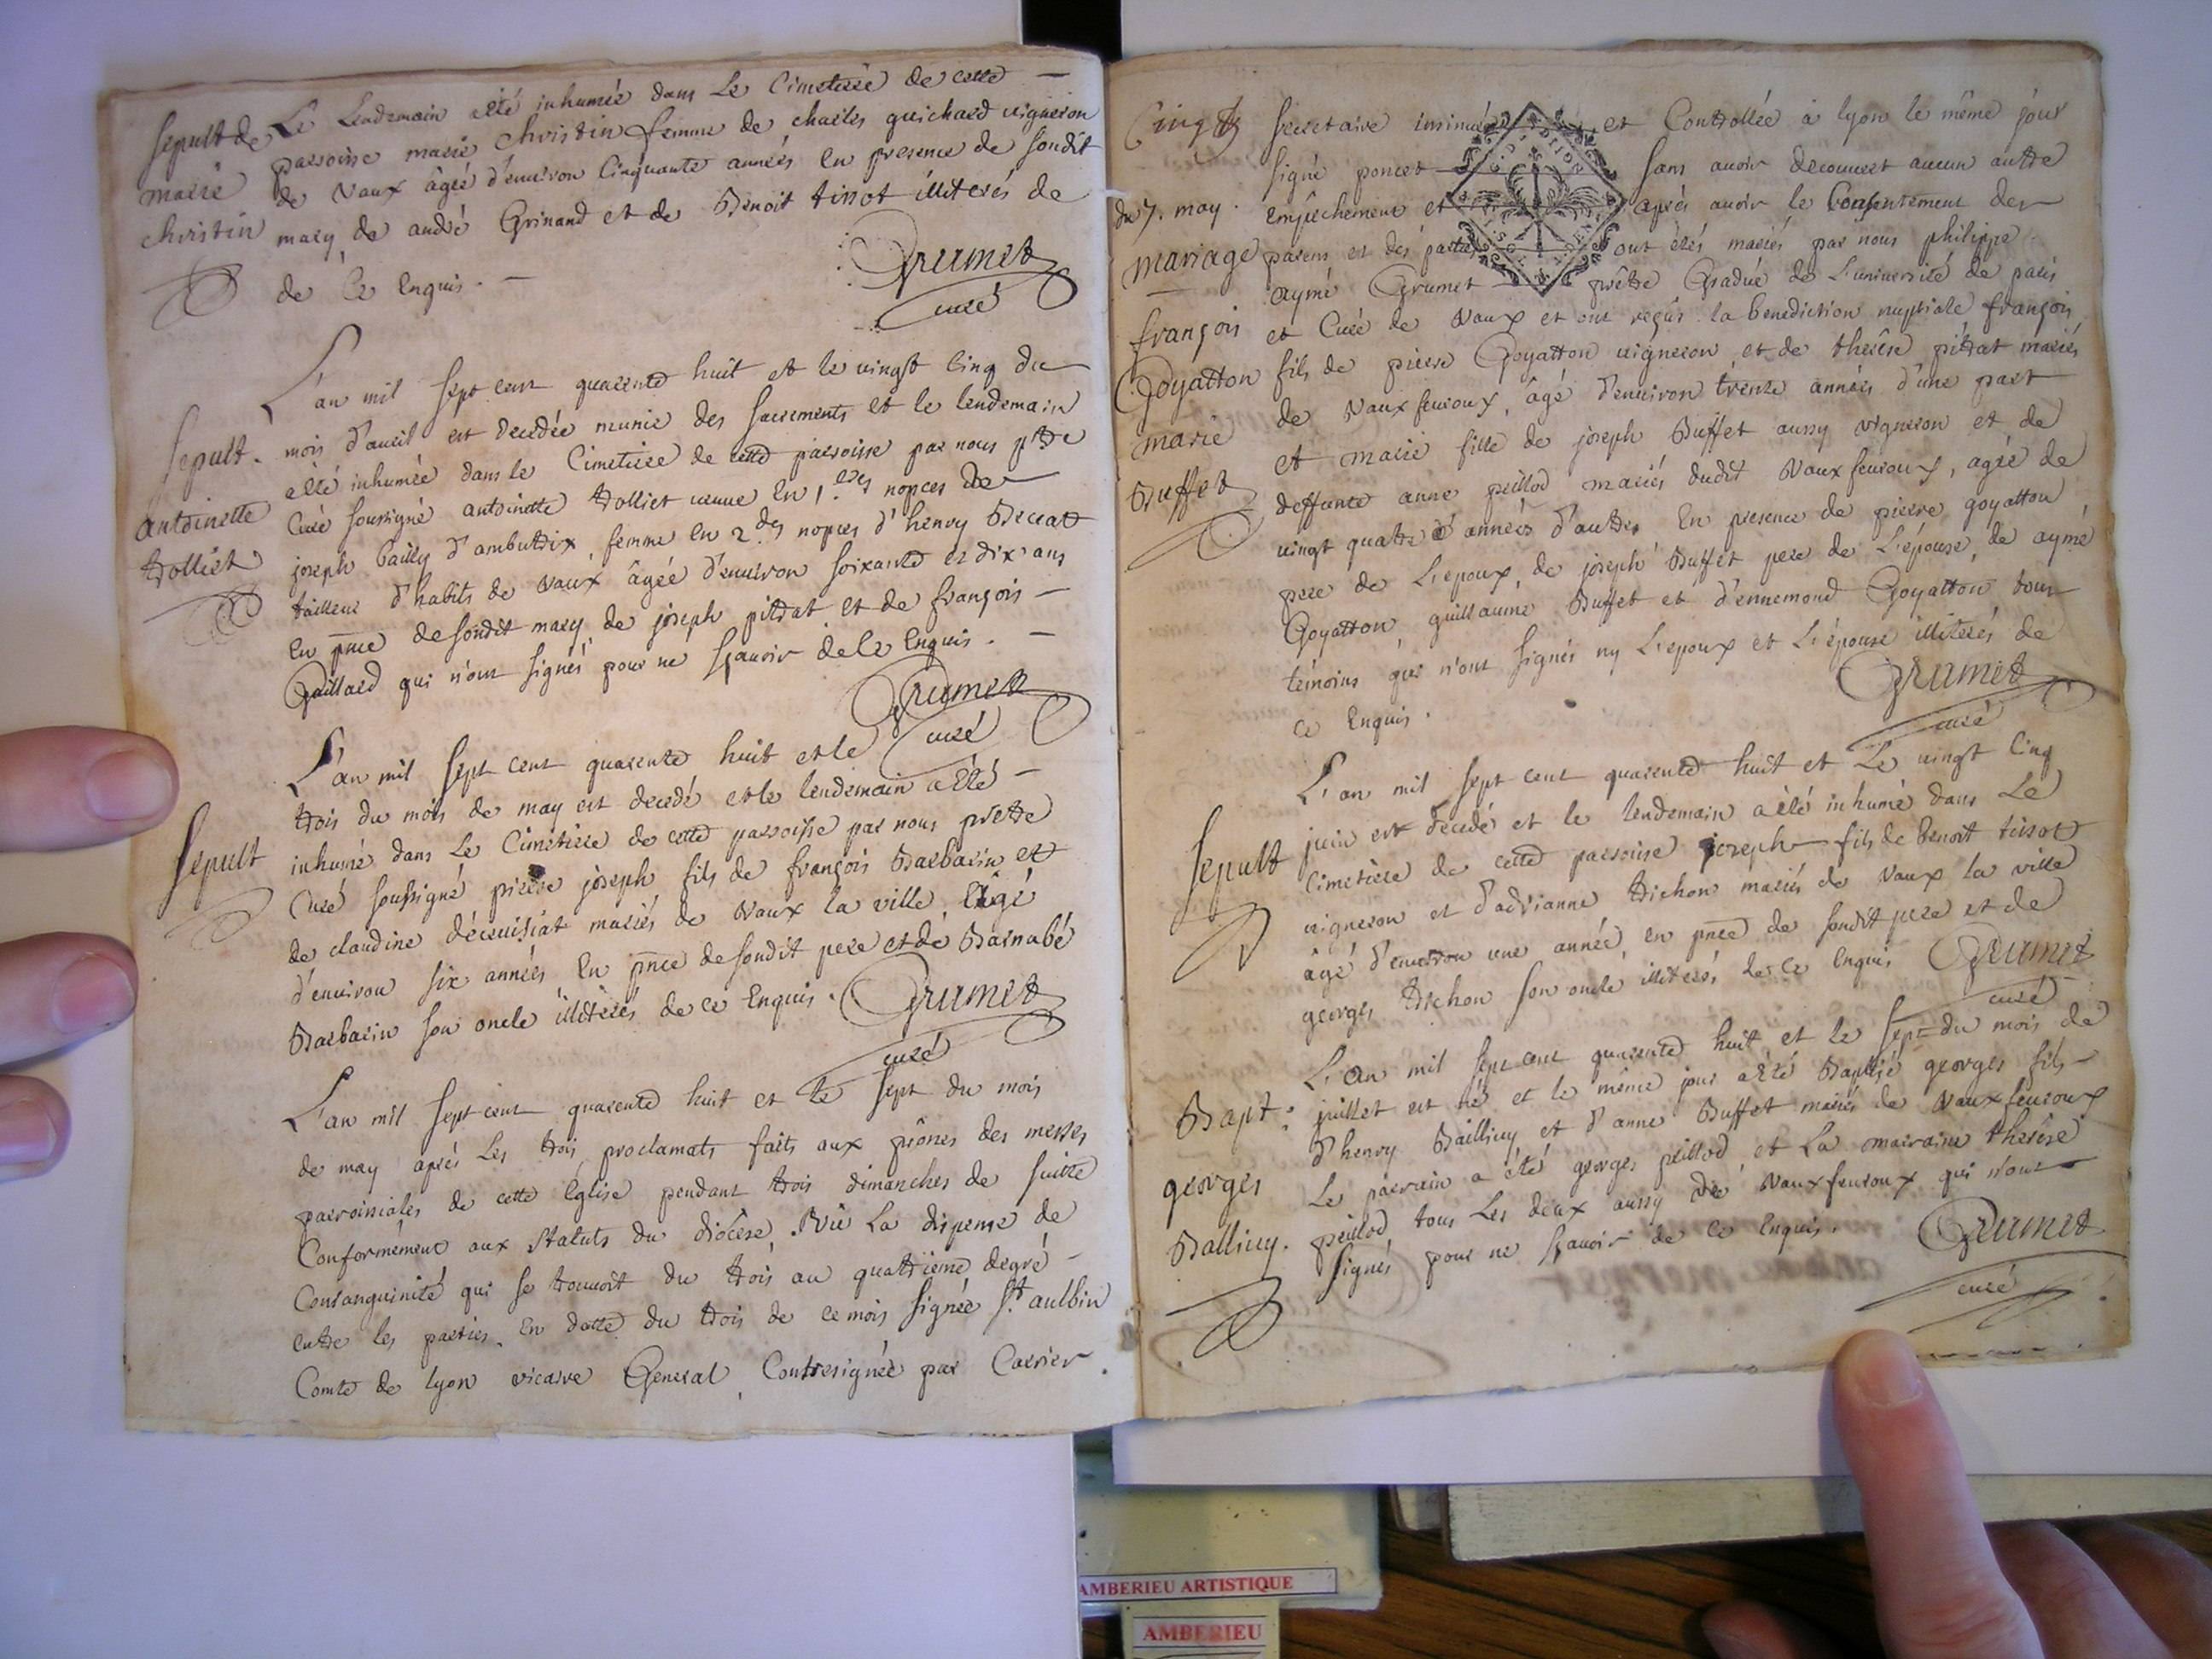 Sepult de
marie
christin
Le Lendemain eté inhumée dans Le Cimetiere de cette
parroisse marie christin femme de charles guichard vigneron
de Vaux âgée d'environ Cinquante années en presence de sondit
mary de andré Grinand et de Benoit tissot illiterés de
de Ce Enquis.
Grumet
curé
Sepult.
antoinette
tolliet
L'an mil sept cent quarente huit et le vingt cinq du
mois d'avril est decedée munie des sacrements et le lendemain
a eté inhumée dans le Cimetiere de cette parroisse par nous ptre
Curé soussigné antoinette tolliet veuve En 1.eres nopces de
joseph bailly d'ambutrix, femme en 2.des nopces d'henry
tailleur d'habits de Vaux âgée d'environ soixante et dix ans
En pnce de sondit mary, de joseph pitrat et de françois
Gaillard qui n'ont signés pour ne sçavoir de Ce Enquis.
Grumet
curé
Sepult
L'an mil sept cent quarente huit et le
trois du mois de may est decedé et le lendemain a été
inhumé dans Le Cimetiere de cette parroisse par nous prettre
Curé soussigné pierre joseph fils de françois Barbarin et
de claudine décruisiat mariés de Vaux la ville âgé
d'environ six années En pnce de sondit pere et de Barnabé
Barbarin son oncle illiterés de ce Enquis.
Grumet
curé
L'an mil sept cent quarente huit et le sept du mois
de may aprés Les trois proclamats faits aux prônes des messes
parroissiales de cette Eglise pendant trois dimanches de suitte
Conformément aux Statuts du diocese, Vüe La dispense de
Consanguinité qui se trouvoit du trois au quatrieme degré
entre les parties, En datte du trois de ce mois signée St. aulbin
Comte de lyon vicaire General, Contresignée par Carrier
du 7. may.
mariage
françois
Goyatton
marie
Buffet
secretaire insinuée et Controllée à lyon le même jour
signé poncet sans avoir decouvert aucun autre
empêchement et aprés avoir le Consentement des
parens et des parties ont étés mariés par nous philippe
aymé Grumet prêtre Gradué de L'université de paris
et Curé de Vaux et ont reçûs la benediction nuptiale françois
fils de pierre Goyatton vigneron et de therêse pitrat mariés
de Vaux fevroux, âgé d'environ trente années d'une part
et marie fille de joseph Buffet aussy vigneron et de
deffunte anne peillod mariés dudit Vaux fevroux, agée de
vingt quatre années d'autre En presence de pierre goyatton
pere de L'epoux, de joseph Buffet pere de L'épouse, de aymé
Goyatton, guillaume Buffet et d'ennemond Goyatton tous
témoins qui n'ont signés ny L'epoux et L'épouse illiterés de
ce Enquis.
Grumet
curé
Sepult
L'an mil sept cent quarente huit et Le vingt Cinq
juin est decedé et le lendemain a été inhumé dans Le
Cimetiere de cette parroisse joseph fils de benoit tissot
vigneron et d'adrianne trichon mariés de Vaux la ville
âgé d'environ une année, en pnce de sondit pere et de
georges trichon son oncle illiterés de ce Enquis
Grumet
curé
Bapt:
georges
Ballivy.
L'an mil sept cent quarente huit et le sept du mois de
juillet est né et le même jour a été Baptisé georges fils
d'henry Baillivy et d'anne Buffet mariés de Vaux fevroux
Le parrain a été georges peillod et La marraine therêse
peillod, tous Les deux aussy de Vaux fevroux qui n'ont
signés pour ne sçavoir de ce Enquis.
Grumet
curé
AMBERIEU ARTISTIQUE
AMBERIEU